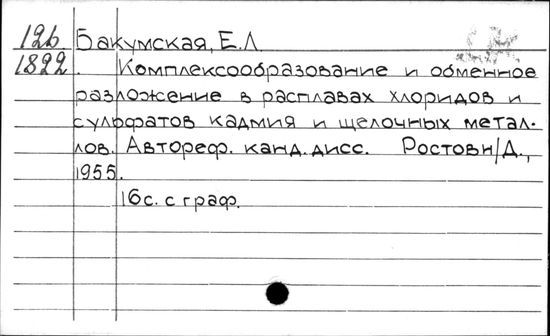 12б Бакумская, Е.Л.
1822 Комплексообразование и обменное
разложение в расплавах хлоридов и
сульфатов кадмия и щелочных метал-
лов. Автореф. канд. дисс. Ростовн/Д.,
1955.
16с. с граф.